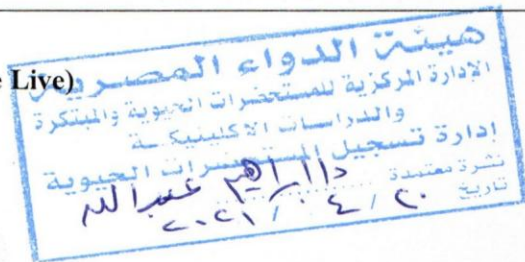 e Live)
هيئة الدواء المصرية
الإدارة المركزية للمستحضرات الحيوية والمبتكرة
والدراسات الاكلينيكية
إدارة تسجيل المستحضرات الحيوية
نشرة معتمدة د/ ابراهيم عبدالله
تاريخ ٢٠ / ٤ / ٢٠٢١